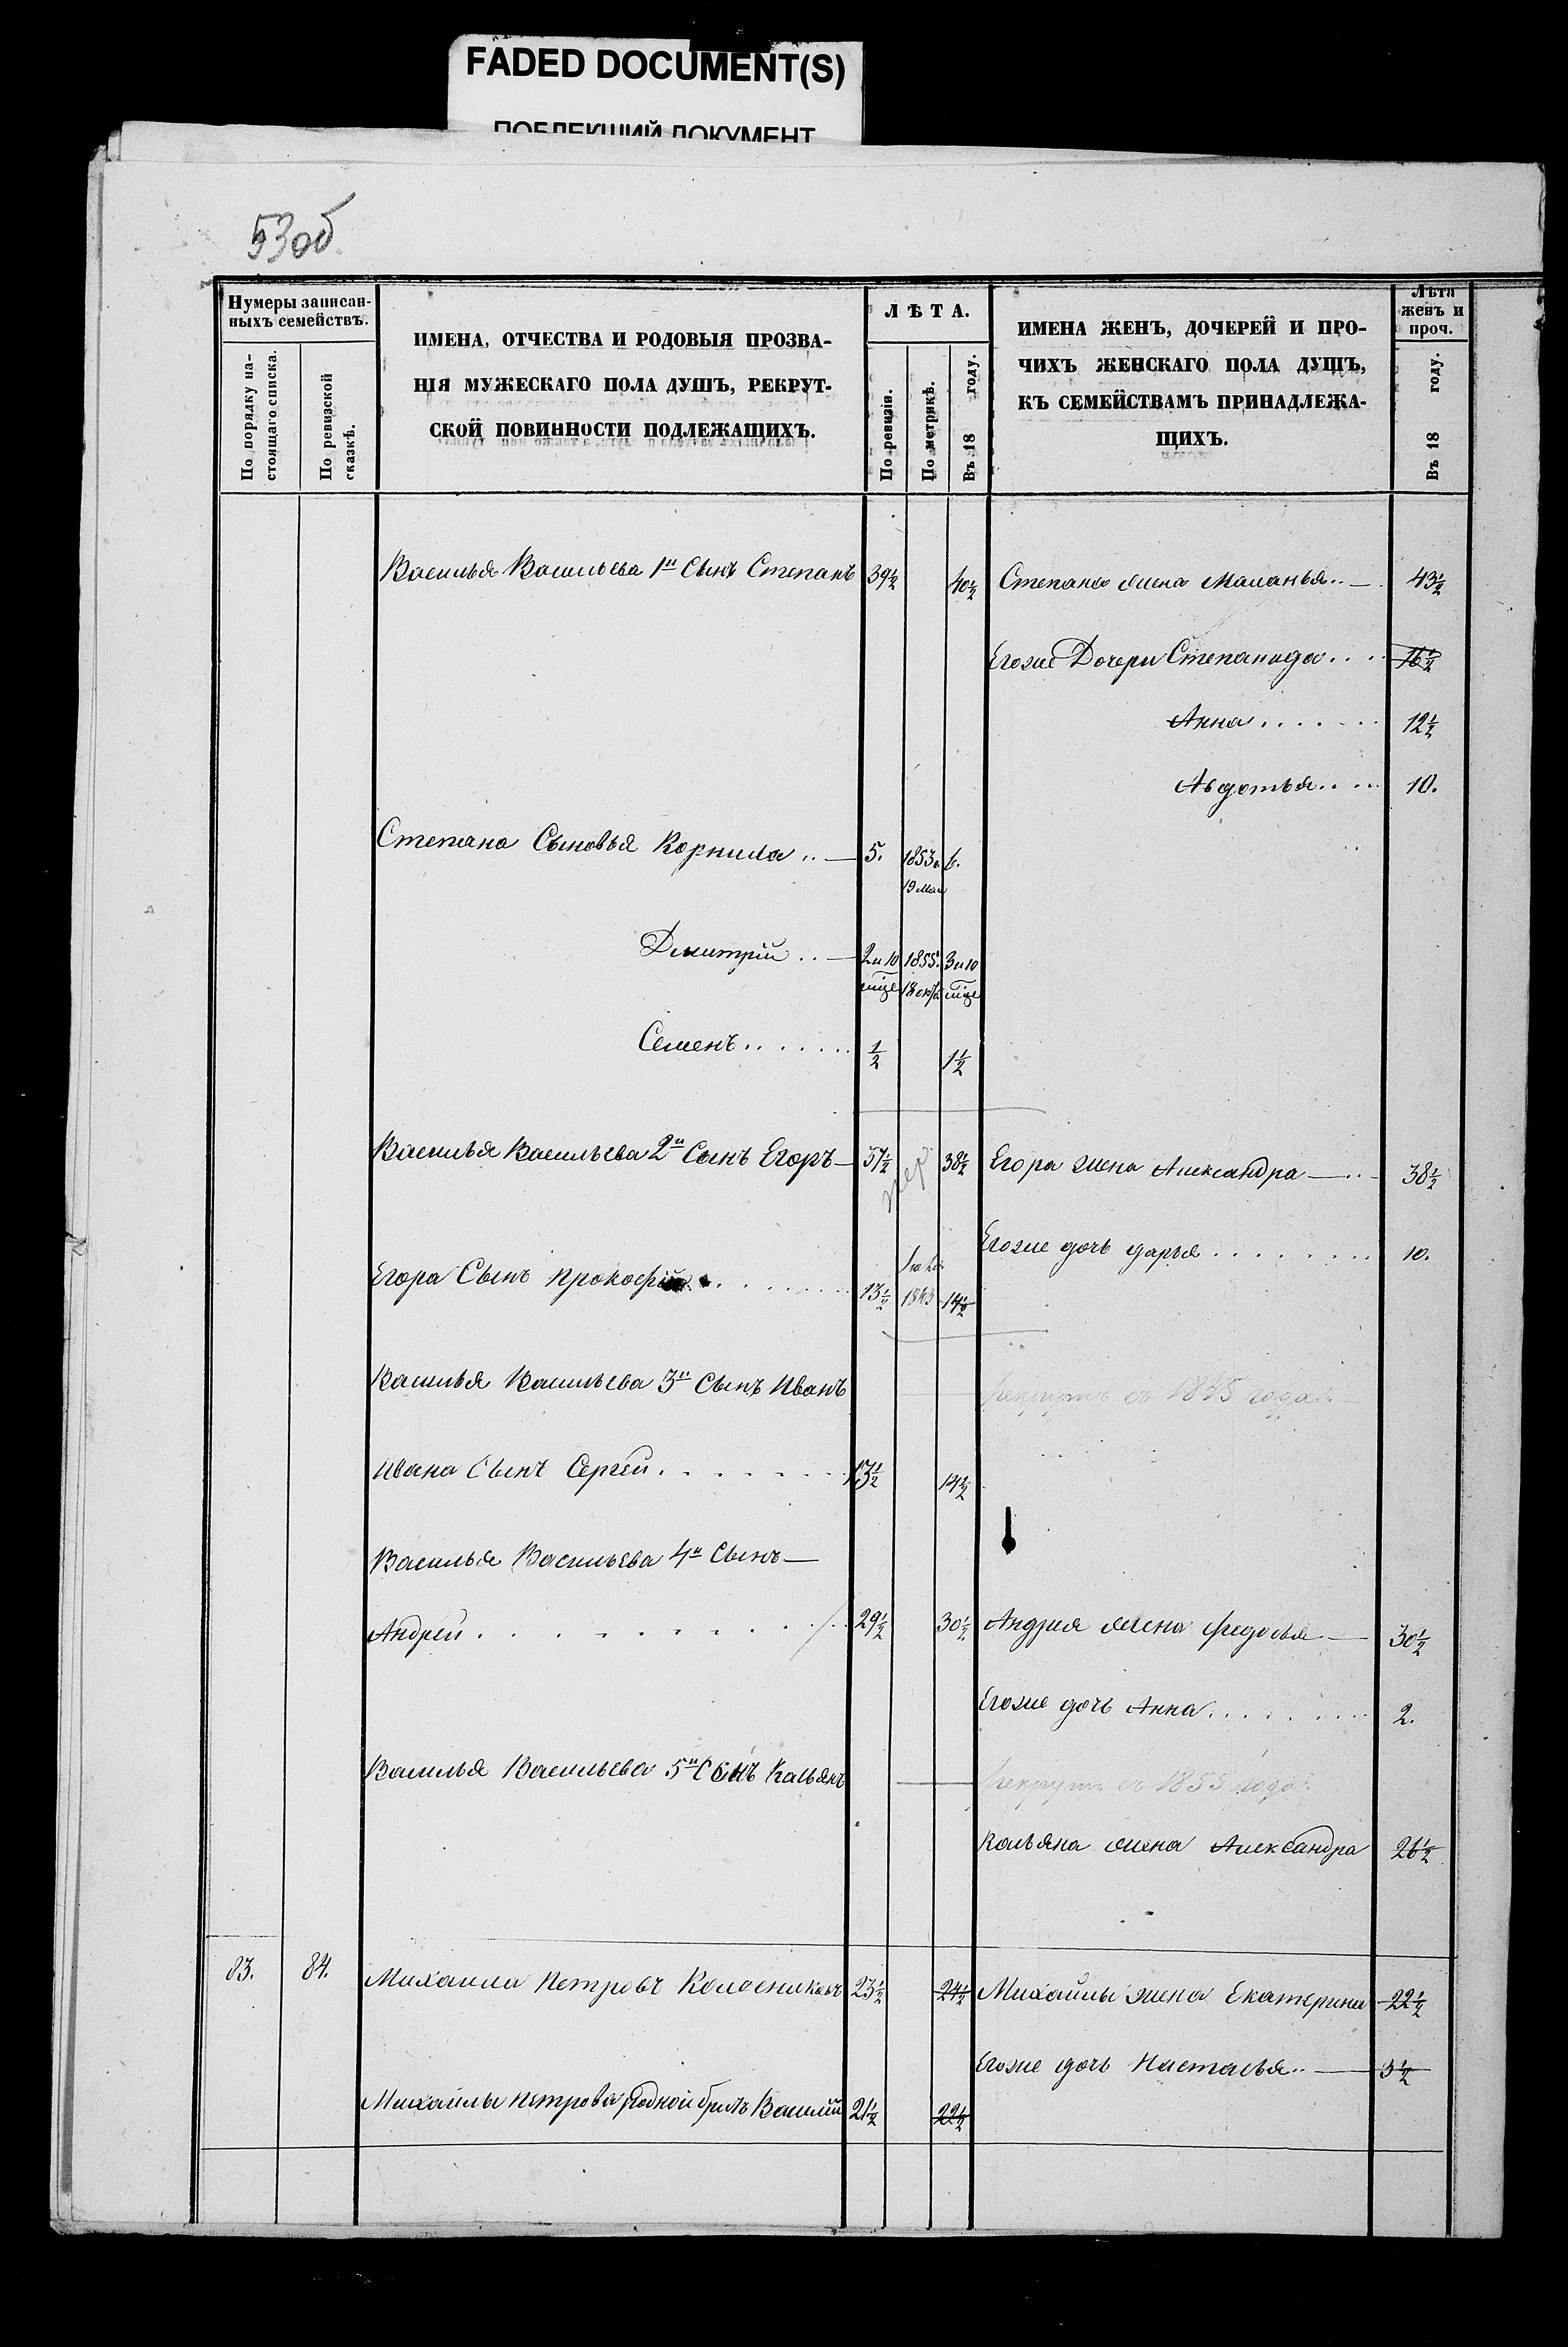 FADED DOCUMENT(S)
ПОБЛЕКШИЙ ДОКУМЕНТ
53об
Нумеры записан-
ныхъ семействъ.
По порядку на-
стоящаго списка.
По ревизской
сказкѣ.
ИМЕНА, ОТЧЕСТВА И РОДОВЫЯ ПРОЗВА-
НІЯ МУЖЕСКАГО ПОЛА ДУШЪ, РЕКРУТ-
СКОЙ ПОВИННОСТИ ПОДЛЕЖАЩИХЪ.
ЛѢТА.
По ревизіи.
По метрикѣ.
Въ 18 году.
ИМЕНА ЖЕНЪ, ДОЧЕРЕЙ И ПРО-
ЧИХЪ ЖЕНСКАГО ПОЛА ДУШЪ,
КЪ СЕМЕЙСТВАМЪ ПРИНАДЛЕЖА-
ЩИХЪ.
Лѣта
женъ и
проч.
Въ 18 году.
Василья Васильева 1й Сынъ Степанъ 39½ 40½ Степана жена Маланья 43½
Егоже Дочери Степанида 16½
Анна 12½
Авдотья 10.
Степана Сыновья Корнила 5. 1853г. 6.
19 мая
Дмитрій 2 и 10 1855. 3 и 10
мѣце 18 окт мѣце
Семенъ ½ 1½
Василья Васильева 2й Сынъ Егоръ 37½ 38½ Егора жена Александра 38½
Егоже дочь дарья 10.
Егора Сынъ Прокофій 13½ 1843 14½
Василья Васильева 3й Сынъ Иванъ рекрутъ съ 1845 года
Ивана Сынъ Сергей 13½ 14½
Василья Васильева 4й Сынъ
Андрей 29½ 30½ Андрея жена Федосья 30½
Егоже дочь Анна 2.
Василья Васильева 5й Сынъ Касьянъ рекрутъ съ 1855 года
Касьяна жена Александра 26½
83. 84. Михаила Петровъ Колесниковъ 23½ 24½ Михайлы жена Екатерина 22½
Егоже дочь Настасья 3½
Михайлы Петрова родной братъ Василій 21½ 22½